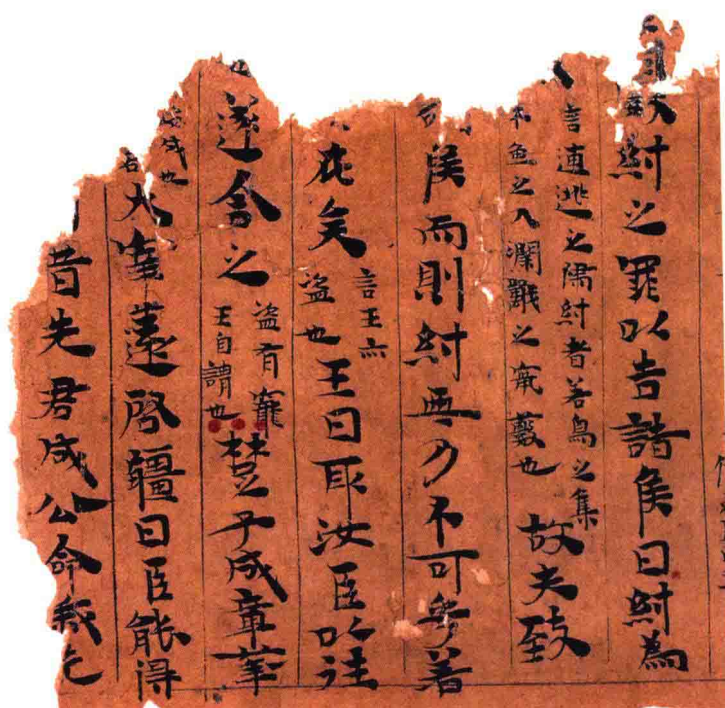 數紂之罪以告諸侯曰紂為
言逋逃之歸紂者若鳥之集
木魚之入淵獸之窟藪也故夫致
侯而則紂無乃不可乎若
在矣言王亦盜也王曰取汝臣以往
遂舍之盜有寵王自謂也楚子成章華
成也
大宰薳啓疆曰臣能得
昔先君成公命我先